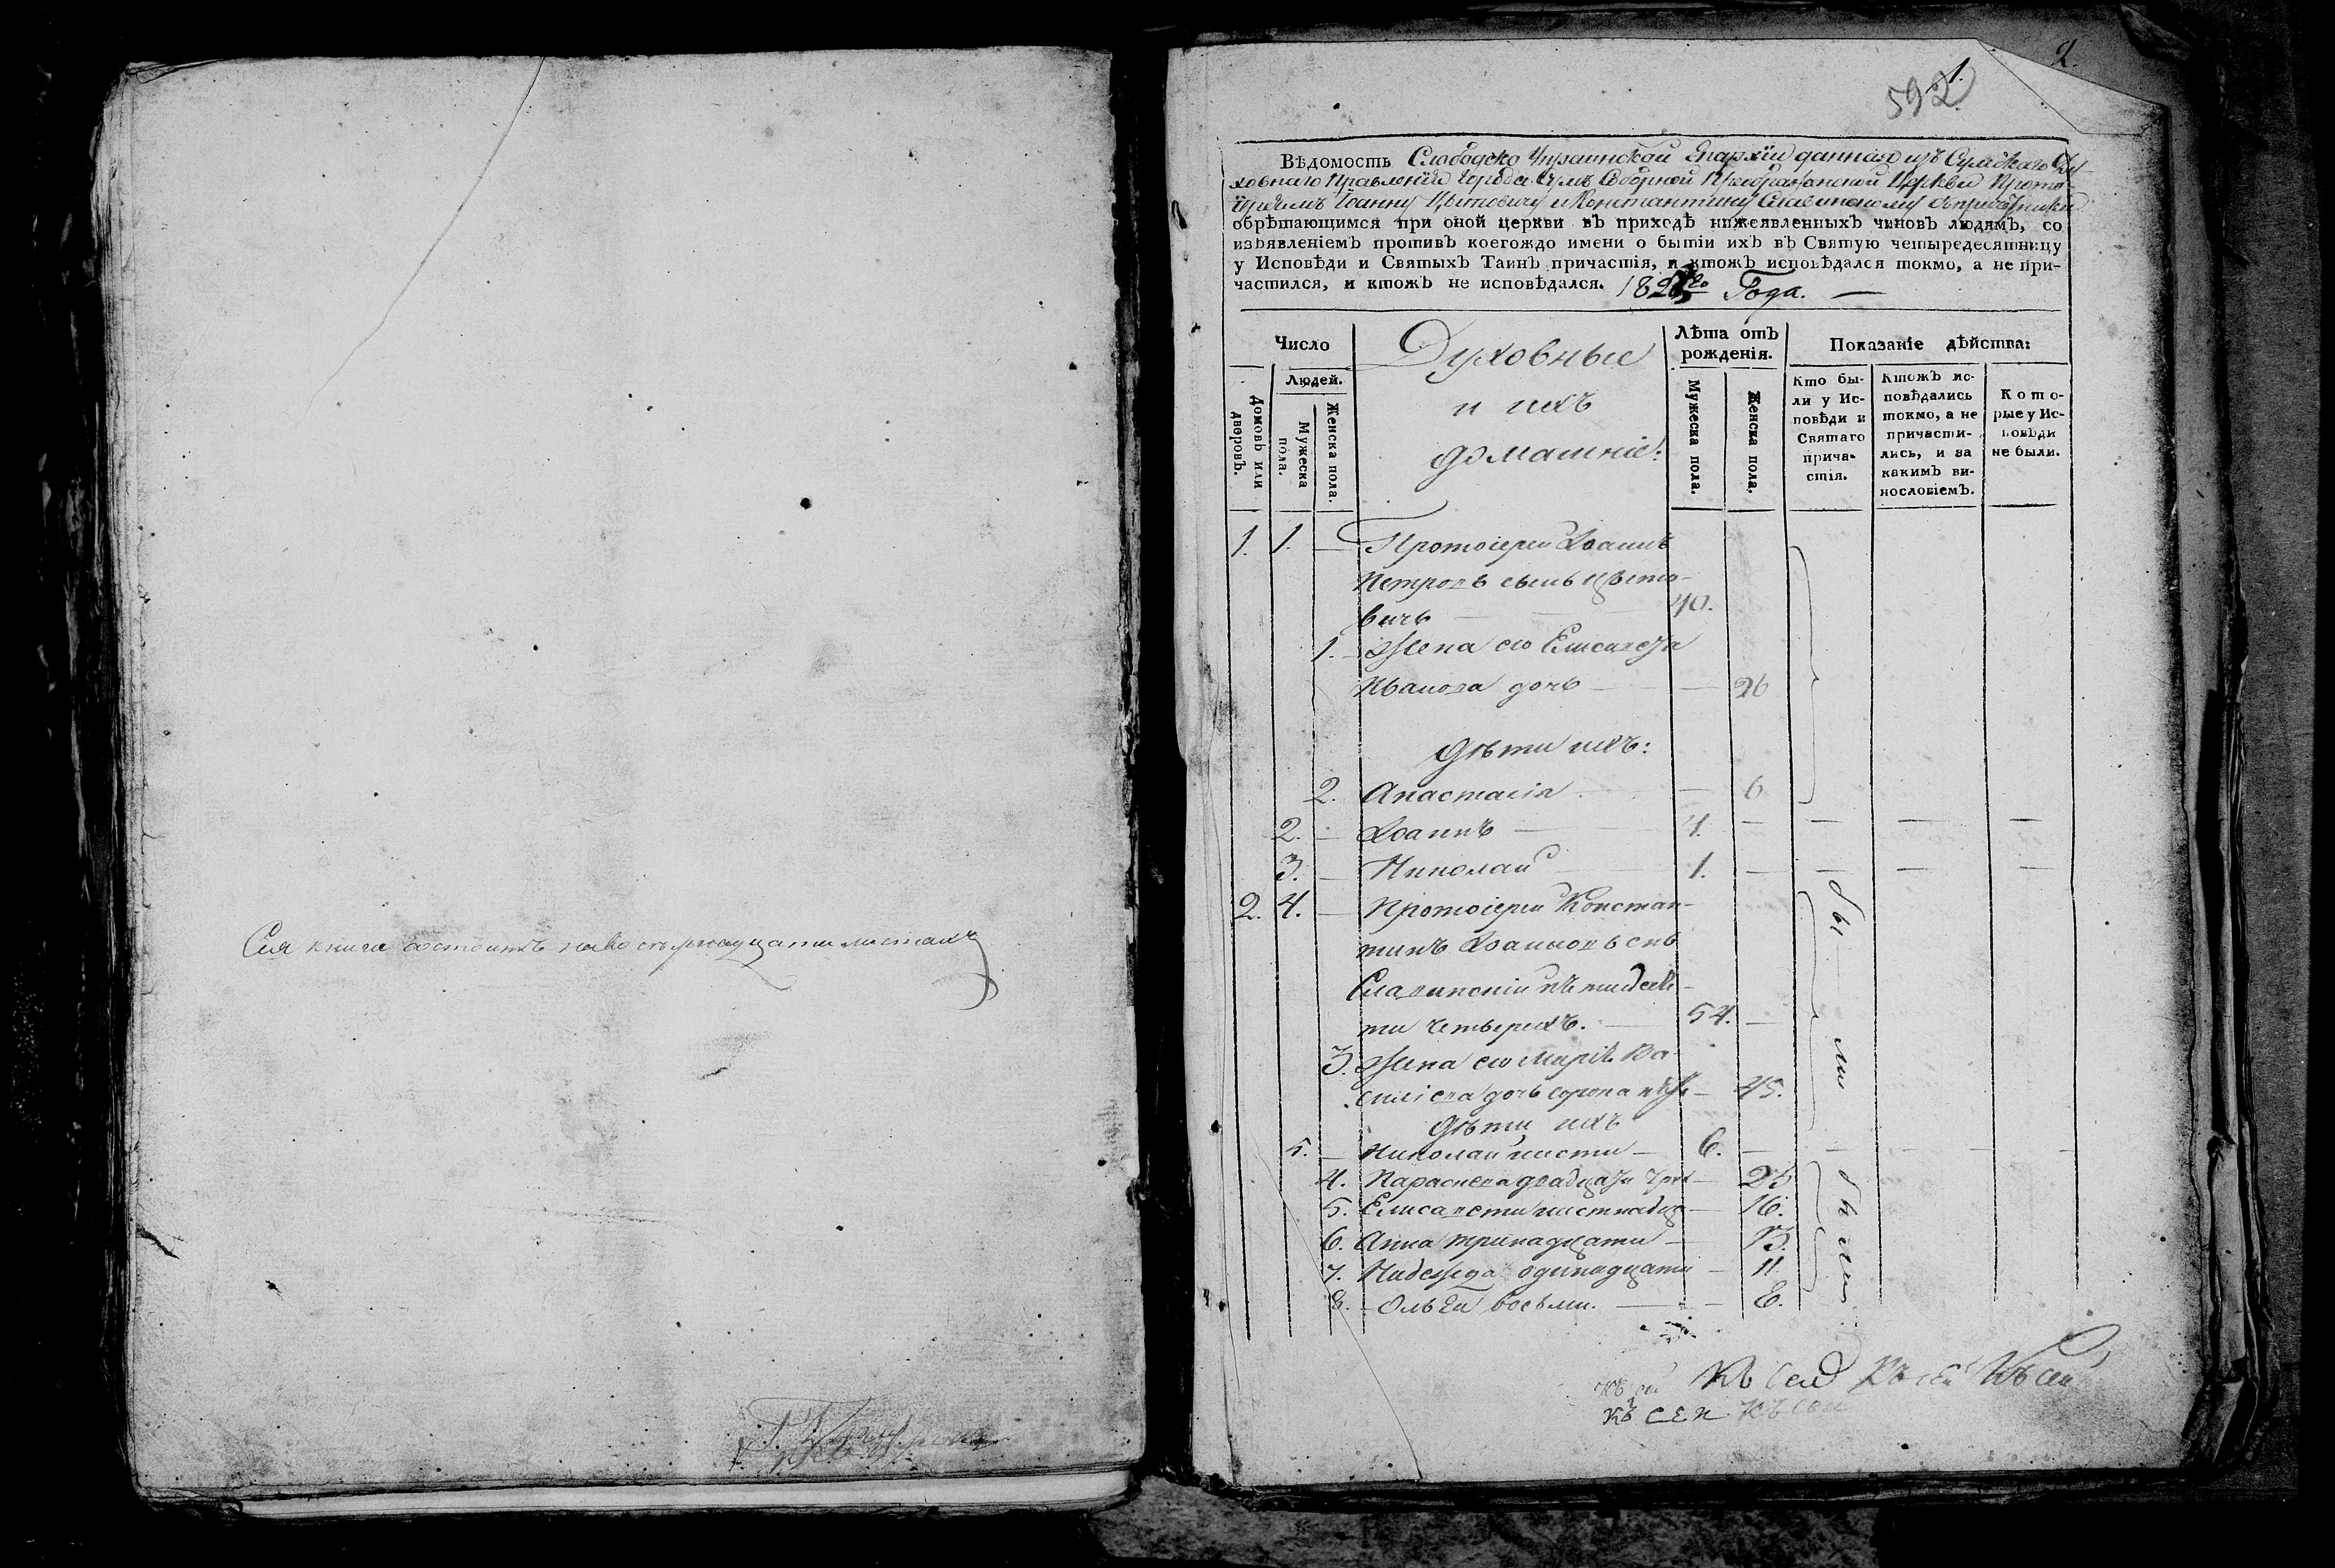 Сія книга состоитъ на
2.
1.
592
Вѣдомость Слободско Украинской Епархіи данная изъ Сумскаго Ду-
ховнаго Правленія города Сумъ Соборной Преображенской Церкви Прото-
іереямъ Іоанну Цвѣтовичу и Константину Славинскому
обрѣтающимся при оной церкви въ приходѣ нижеявленныхъ чиновъ людямъ, со
изъявленіемъ противъ коегождо имени о бытіи ихъ въ Святую четыредесятницу
у Исповѣди и Святыхъ Таинъ причастія, и ктожъ исповѣдался токмо, а не при-
частился, и ктожъ не исповѣдался. Года.
Число
Людей.
Домовъ или дворовъ.
Мужеска пола.
Женска пола.
Духовные
и ихъ
домашніе:
Лѣта отъ
рожденія.
Мужеска пола.
Женска пола.
Показаніе дѣйства:
Кто бы-
ли у Ис-
повѣди и
Святаго
прича-
стія.
Ктожъ ис-
повѣдались
токмо, а не
причасти-
лись, и за
какимъ ви-
нословіемъ.
Кото-
рые у Ис-
повѣди
не были.
1. 1. Протоіерей Іоаннъ
Петровъ сынъ Цвѣто-
вичъ 40.
1. Жена его Елисавета
Иванова дочь 26
Дѣти ихъ:
2. Анастасія 6
2. Іоаннъ 4.
3. Николай 1.
2. 4. Протоіерей Констан-
тинъ Іоанновъ снъ
Славинскій пятидеся-
ти четырехъ. 54.
3. Жена его Марія Ва-
силіева дочь сорока пять 45.
Дѣти ихъ
5. Николай шести 6.
4. Параскева двадцати трех 23
5. Елисавета шестнадц 16.
6. Анна тринадцати 13.
7. Надежда одинадцати 11.
8. Ольга восьми. 8.
бы ли
были
Къ сей Къ сей Къ сей
Къ сей Къ сей